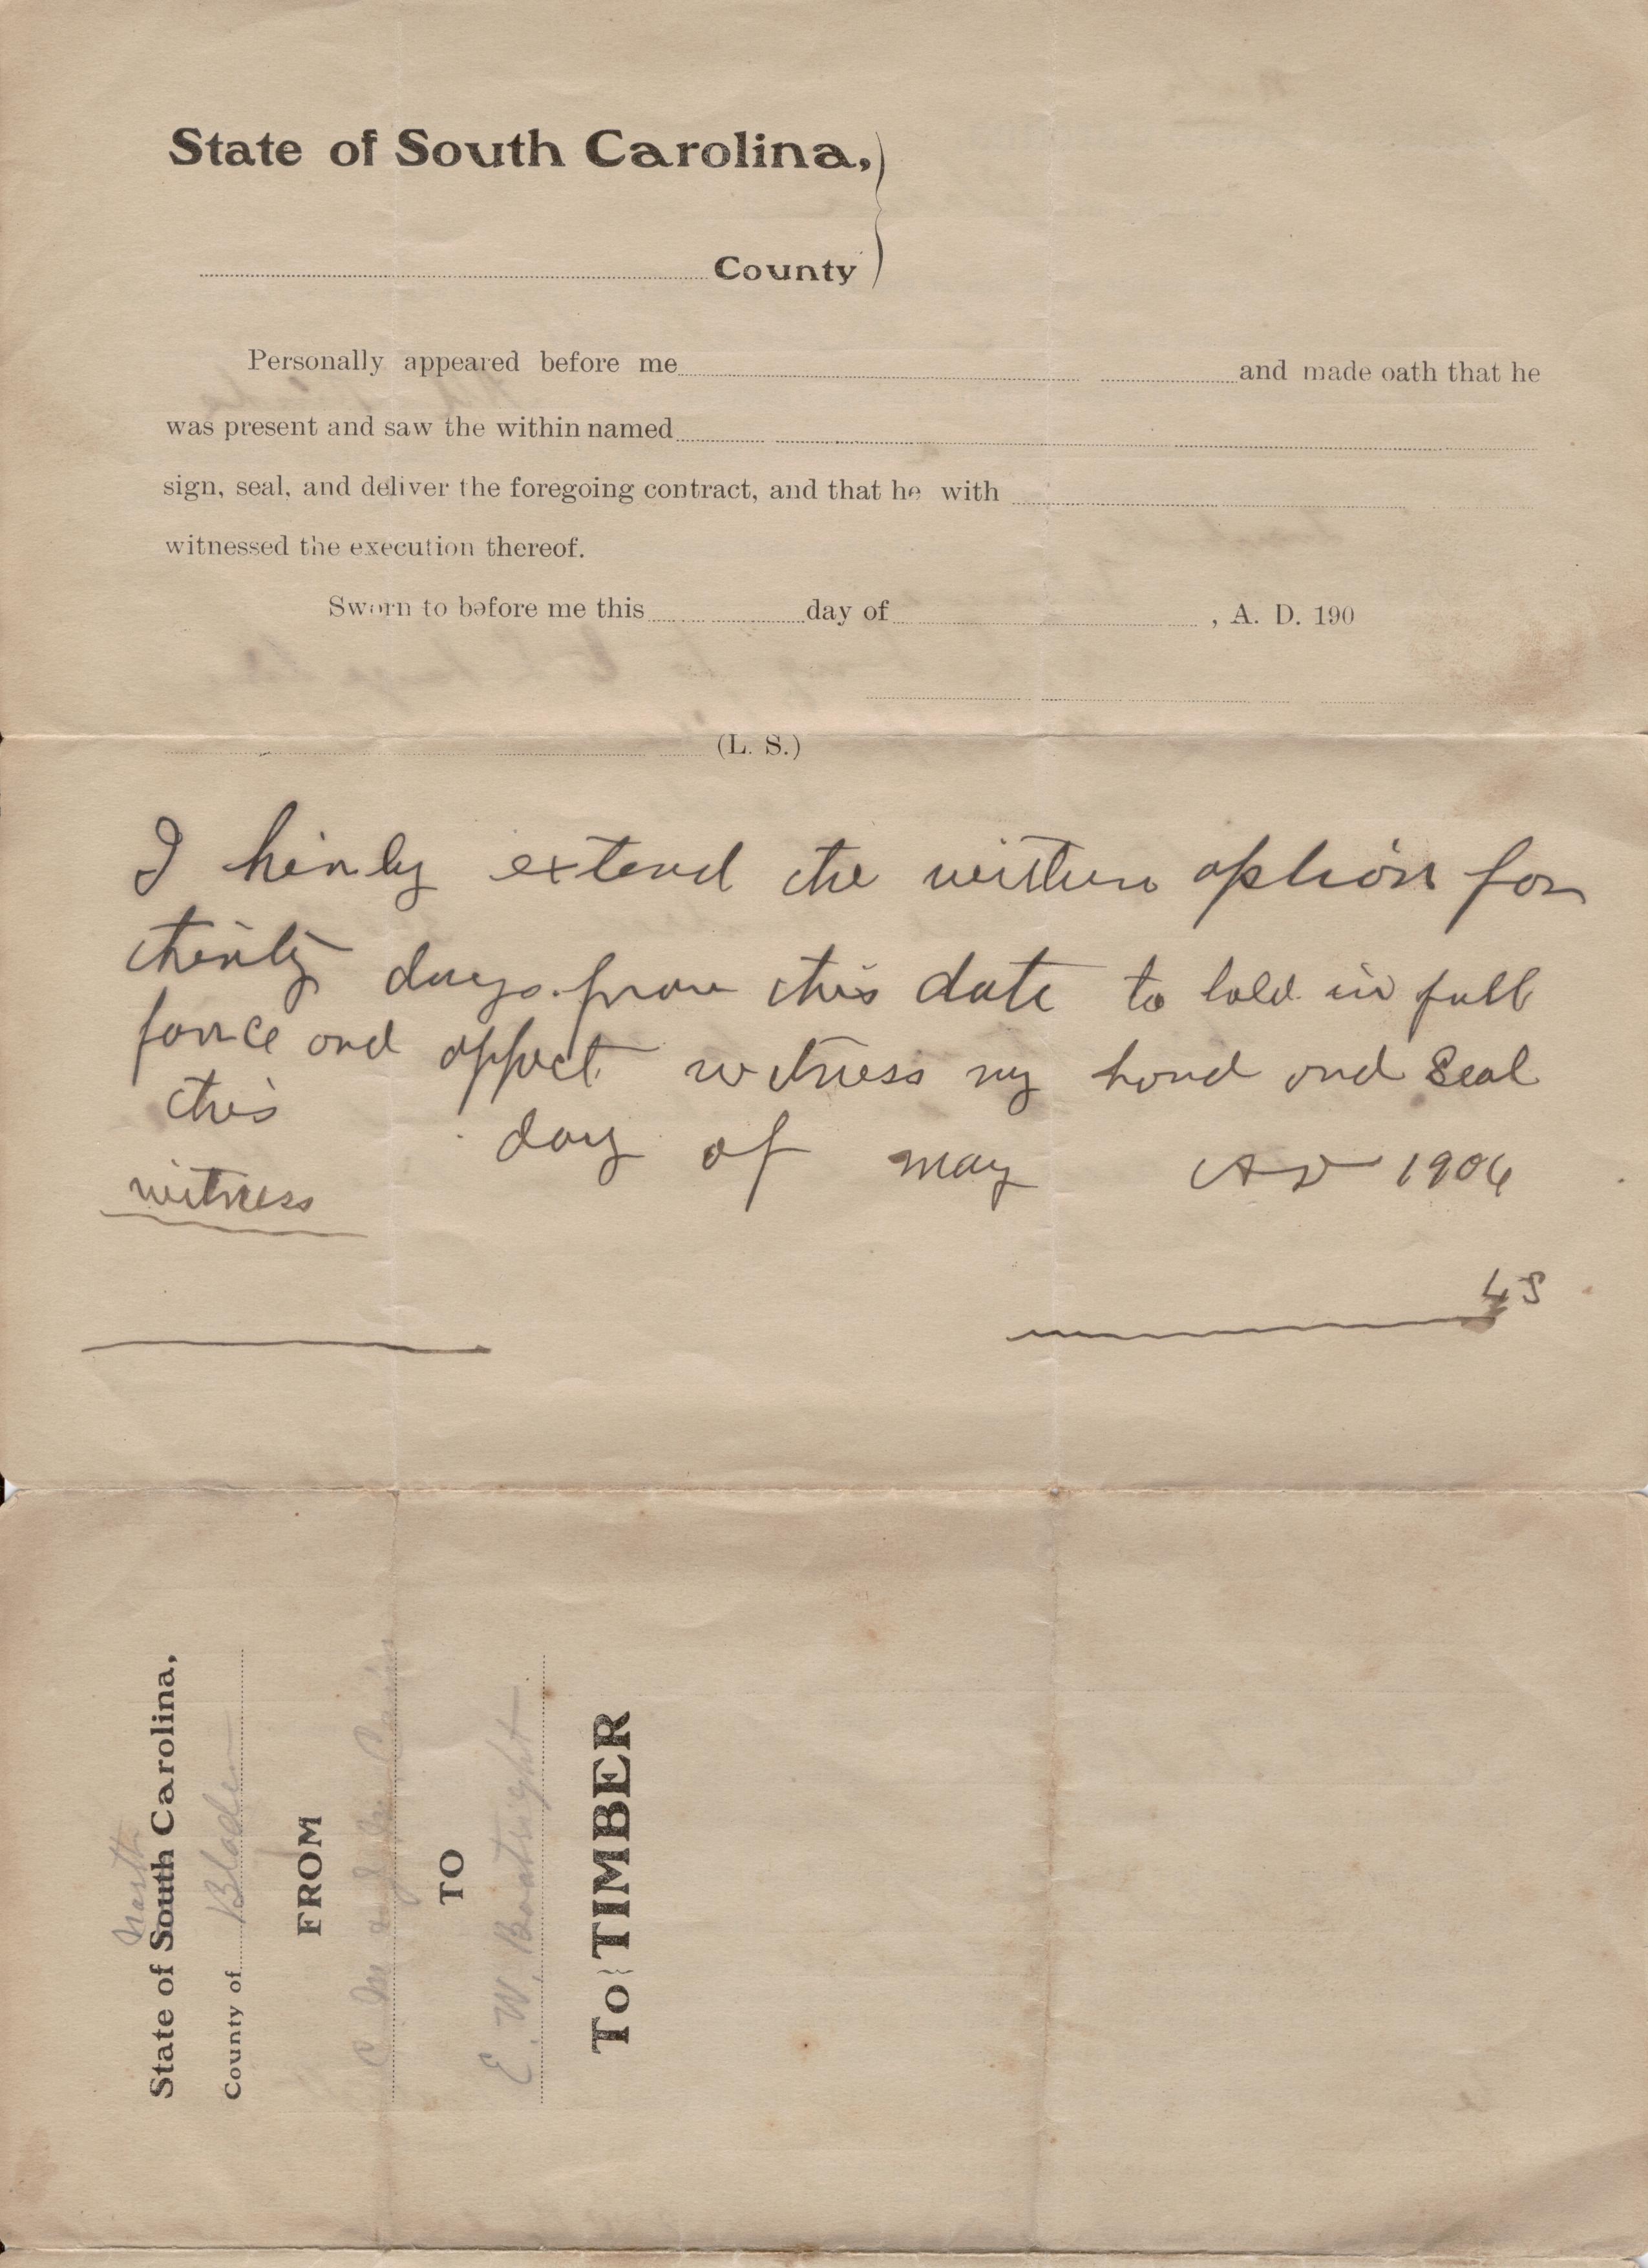 State of South Carolina,
County
Personally appeared before me and made oath that he
was present and saw the within named
sign, seal, and deliver the foregoing contract, and that he with
witnessed the execution thereof.
Sworn to before me this day of , A. D. 190
(L. S.)
I hereby extend the within option for
thirty days from this date to hold in full
force and effect witness my hand and Seal
this day of may AD 1906
witness
LS
North
State of South Carolina,
County of Bladen
FROM
C M Cain
TO
E. W. Boatright
To TIMBER